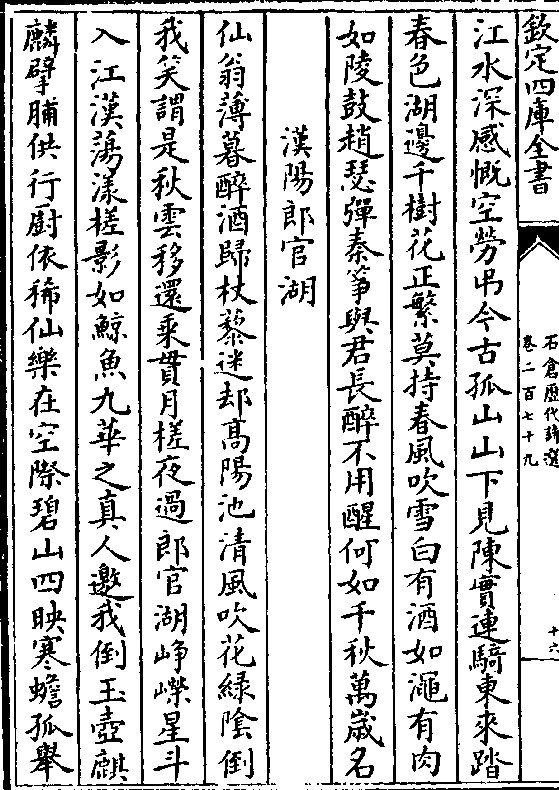 欽定四庫全書
石倉歷代詩選
卷二百七十九
十六
江水深感慨空勞弔今古孤山山下見陳實連騎東來踏
春色湖邊千樹花正繁莫持春風吹雪白有酒如澠有肉
如陵鼓趙瑟彈秦箏與君長醉不用醒何如千秋萬歲名
漢陽郎官湖
仙翁薄暮醉酒歸杖藜迷却髙陽池清風吹花緑陰倒
我笑謂是秋雲移還乘貫月槎夜過郎官湖崢嶸星斗
入江漢蕩漾槎影如鯨魚九華之真人邀我倒玉壺麒
麟擘脯供行厨依稀仙樂在空際碧山四映寒蟾孤舉